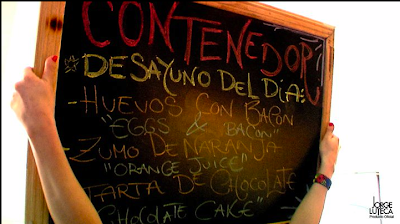 CONTENEDOR
DESAYUNO DEL DÍA:
- HUEVOS CON BACON
"EGGS & BACON"
- ZUMO DE NARANJA
"ORANGE JUICE"
TARTA DE CHOCOLATE
CHOCOLATE CAKE"
JORGE
LUTECA